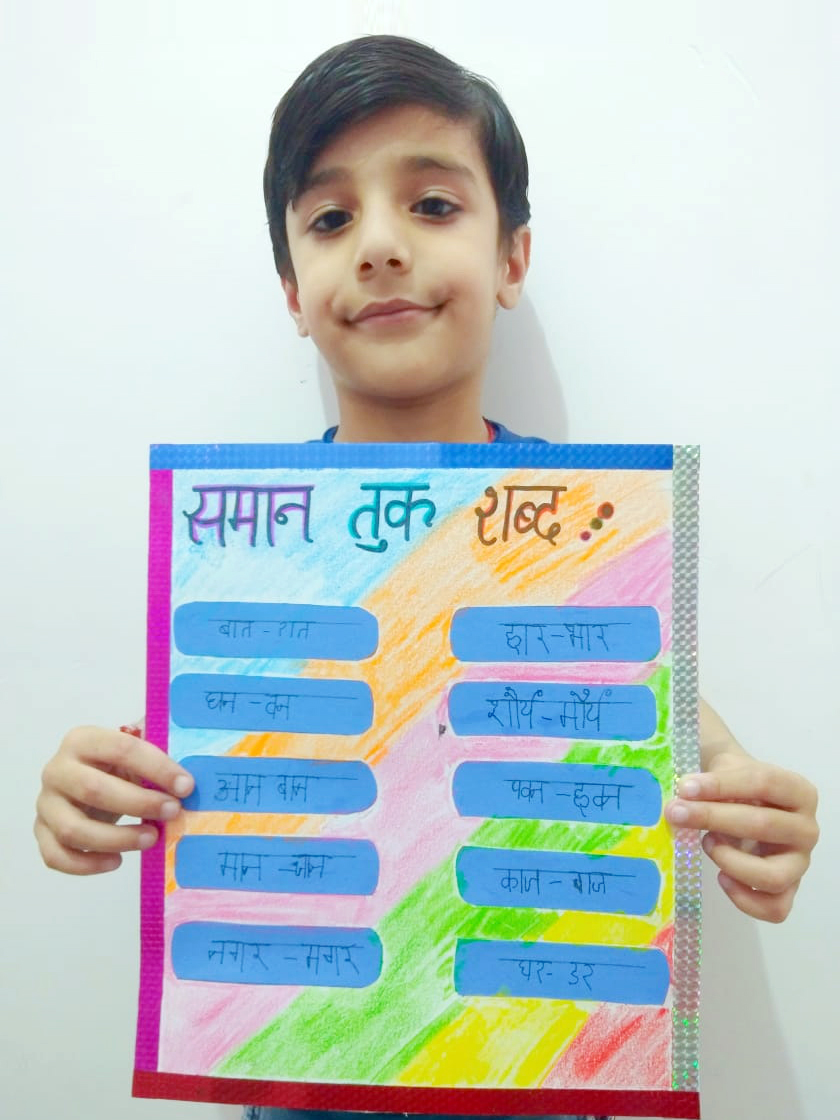 समान तुक शब्द :
बात - रात
घन - वन
आन बान
मान - जान
नगर - मगर
हार - भार
शौर्य - मौर्य
पवन - हवन
काज - बाज
घर - डर